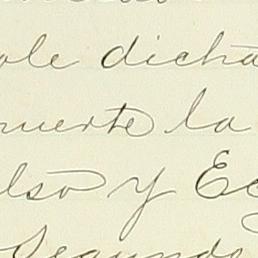 ole dicha
muerte la
lso y Ec
Segundo